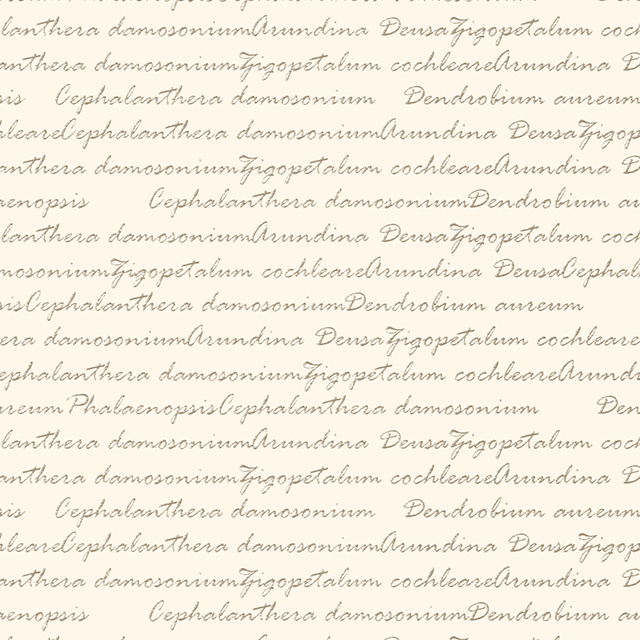 lanthera damosoniumArundina DeusaZigopetalum coch
anthera damosoniumZigopetalum cochleareArundina D
sis Cephalanthera damosonium Dendrobium aureum
hleareCephalanthera damosoniumArundina DeusaZigop
anthera damosoniumZigopetalum cochleareArundina D
aenopsis Cephalanthera damosoniumDendrobium au
lanthera damosoniumArundina DeusaZigopetalum coch
mosoniumZigopetalum cochleareArundina DeusaCephal
sisCephalanthera damosoniumDendrobium aureum
era damosoniumArundina DeusaZigopetalum cochleare
ephalanthera damosoniumZigopetalum cochleareArund
ureumPhalaenopsisCephalanthera damosonium Den
lanthera damosoniumArundina DeusaZigopetalum coch
anthera damosoniumZigopetalum cochleareArundina D
sis Cephalanthera damosonium Dendrobium aureum
hleareCephalanthera damosoniumArundina DeusaZigop
anthera damosoniumZigopetalum cochleareArundina D
aenopsis Cephalanthera damosoniumDendrobium au